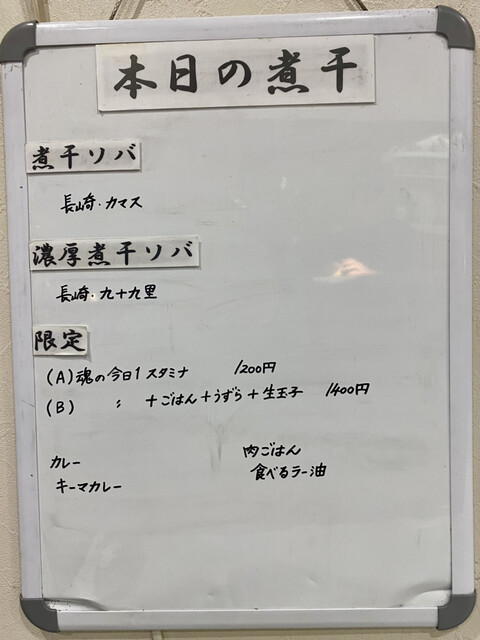 本日の煮干
煮干ソバ
長崎・カマス
濃厚煮干ソバ
長崎・九十九里
限定
(A)魂の今日1スタミナ 1200円
(B) 〃 +ごはん+うずら+生玉子 1400円
カレー
キーマカレー
肉ごはん
食べるラー油